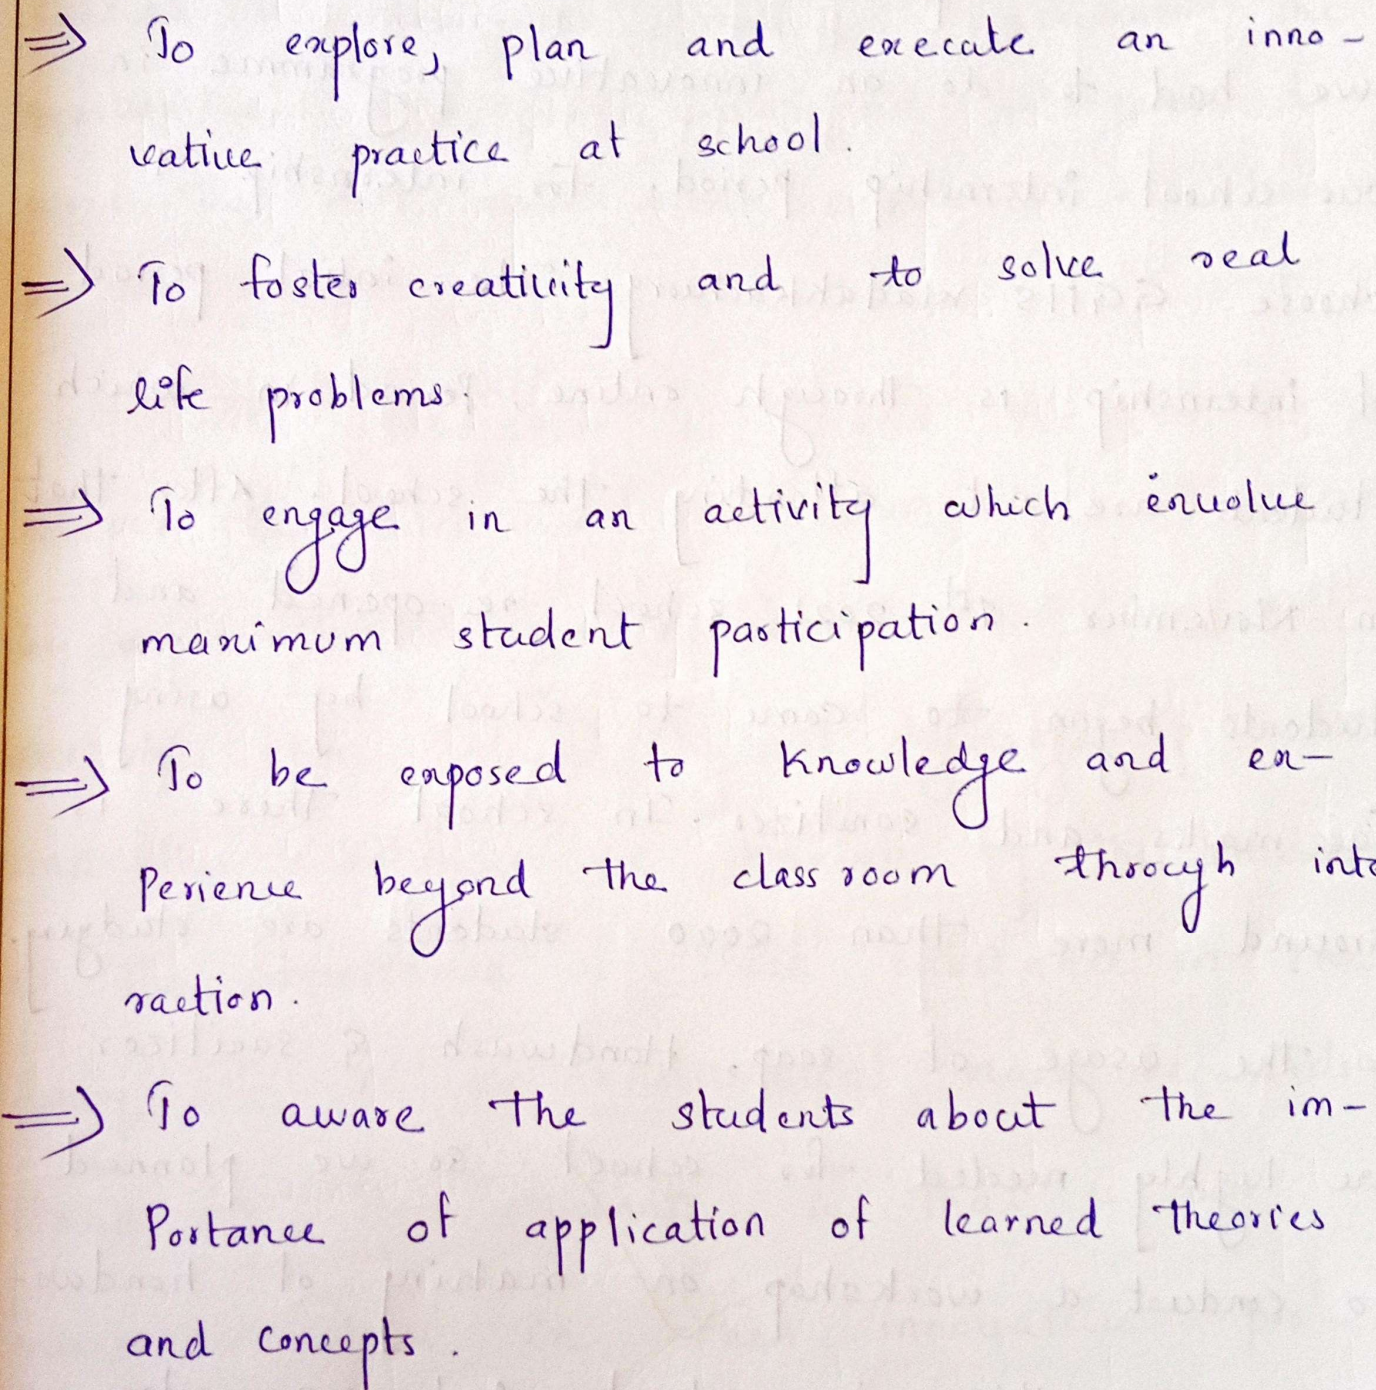 ⇒ To explore, plan and execute an inno-
vative practice at school.
⇒ To foster creativity and to solve real
life problems.
⇒ To engage in an activity which involve
maximum student participation.
⇒ To be exposed to Knowledge and ex-
perience beyond the class room through inte
raction.
⇒ To aware the students about the im-
Portance of application of learned theories
and concepts.